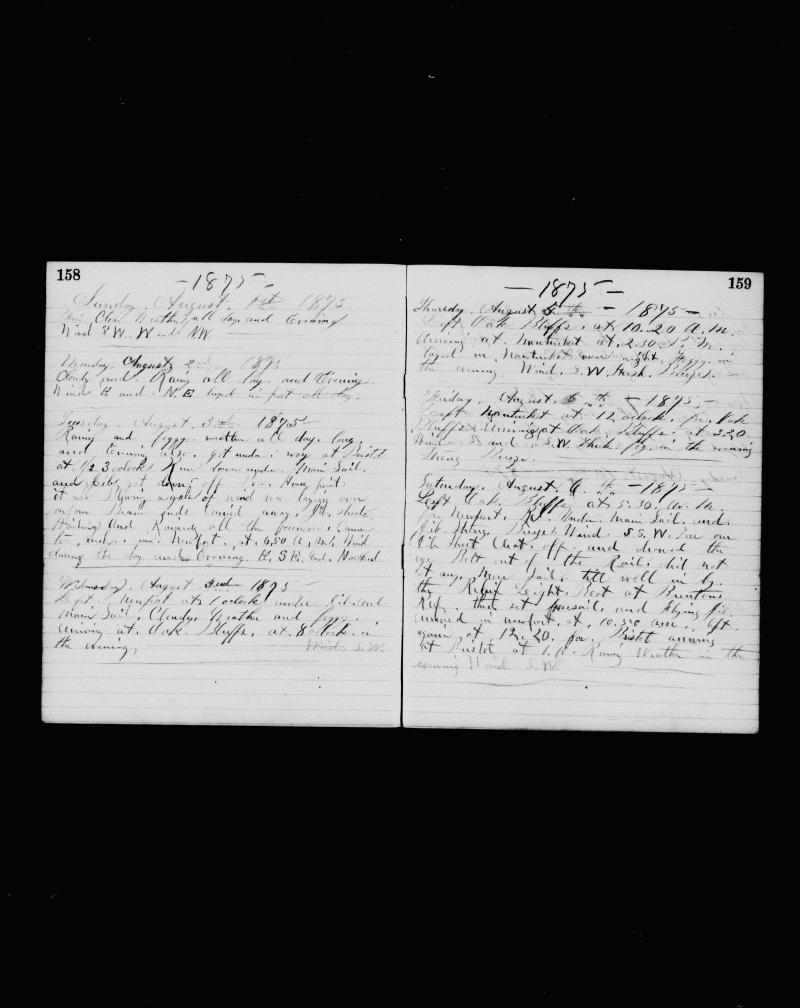 158
— 1875 —
Sunday, August 1st 1875
Fair Clear Weather all day and Evening
Wind S.W. W and N.W.
Monday August 2nd 1875
Cloudy and Rainy all day and Evening
Winds E and N.E. layed in port all day.
Tuesday August 3rd 1875
Rainy and foggy weather all day long,
and Evening also, got under way at Bristol
at 1/2 3 oclock A.m. under Main Sail
and Jib, got off
it was blowing a gale of wind we laying over
on our beam ends away Jib Sheets
and Raining all the forenoon came
to anchor in Newport, at 6,50 A.M. Wind
during the day and Evening E, S E. and Northerd
Wednesday, August 1875
Left Newport at 1 oclock under Jib and
Main Sail, Cloudy Weather and foggy
arriving at Oak Bluffs, at 8 oclock in
the evening, Wind, S.W.
159
— 1875 —
Thursday, August 5 th — 1875 —
Left Oak Bluffs, at 10.20 A.M.
arriving at Nantucket at 2.30 P.M.
layed in Nantucket over night, foggy in
the evening Wind, S.W. fresh Breeze.
Friday, August 6 th — 1875 —
Left Nantucket at 12 oclock, for Oak
Bluffs arriving at Oak Bluffs at 3.20
Wind S and S.W. thick fog in the evening
Strong Breeze.
Saturday, August th — 1875 —
Left Oak Bluffs, at 5.30 A.M.
for Newport, R.I. under Main Sail and
Jib Strong Breeze Wind S.S.W. our
Jib Sheet Cleat off and the
eye Bolt out of the Rail, did not
set any More Sail till well in by
the Relief Light Boat at Brentons
Ref, then set foresail, and flying Jib
arrived in newport at 10.30 a.m. left
again at 12.20 for Bristol arriving
at Bristol at Rainy Weather in the
evening Wind S.W.